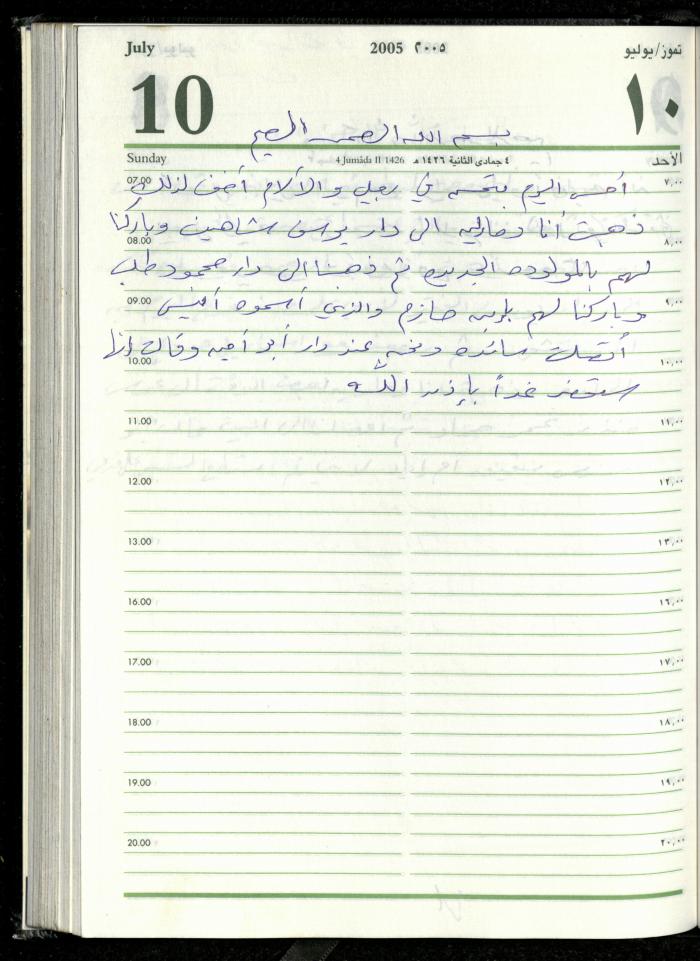 July 2005 ٢٠٠٥ تموز/يوليو
10 ١٠
بسم الله الرحمن الرحيم
Sunday 4 Jumâda II 1426 ٤ جمادى الثانية ١٤٢٦ هـ الأحد
07.00 ٧,٠٠
أحس اليوم بتحسن في رجلي والآلام أخف لذلك
ذهبت أنا و الى دار يوسف شاهين وباركنا
08.00 ٨,٠٠
لهم بالمولوده الجديده ثم ذهبنا الى دار محمود
09.00 ٩,٠٠
وباركنا لهم بإبنه حازم والذي أسموه
أتصلت سائده ونحن عند دار أبو وقالت إنها
10.00 ١٠,٠٠
ستحضر غداً بإذن الله
11.00 ١١,٠٠
12.00 ١٢,٠٠
13.00 ١٣,٠٠
16.00 ١٦,٠٠
17.00 ١٧,٠٠
18.00 ١٨,٠٠
19.00 ١٩,٠٠
20.00 ٢٠,٠٠